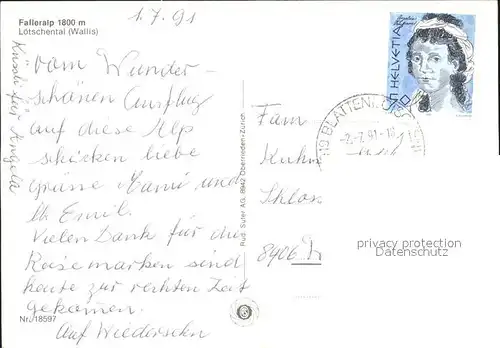 Falleralp 1800 m
Lötschental (Wallis)
1.7.91
vom Wunder-
schönen Ausflug
auf diese Alp
schicken liebe
Grüsse Mami und
Emil.
Vielen Dank für die
Reisemarken sind
heute zur rechten Zeit
gekommen.
Auf Wiedersehn
Nr. 18597
für Angela
Rud. Suter AG, 8942 Oberrieden-Zürich
HELVETIA
BLATTEN
-2.-7.91-
Fam
Kuhn
8906
privacy protection
Datenschutz